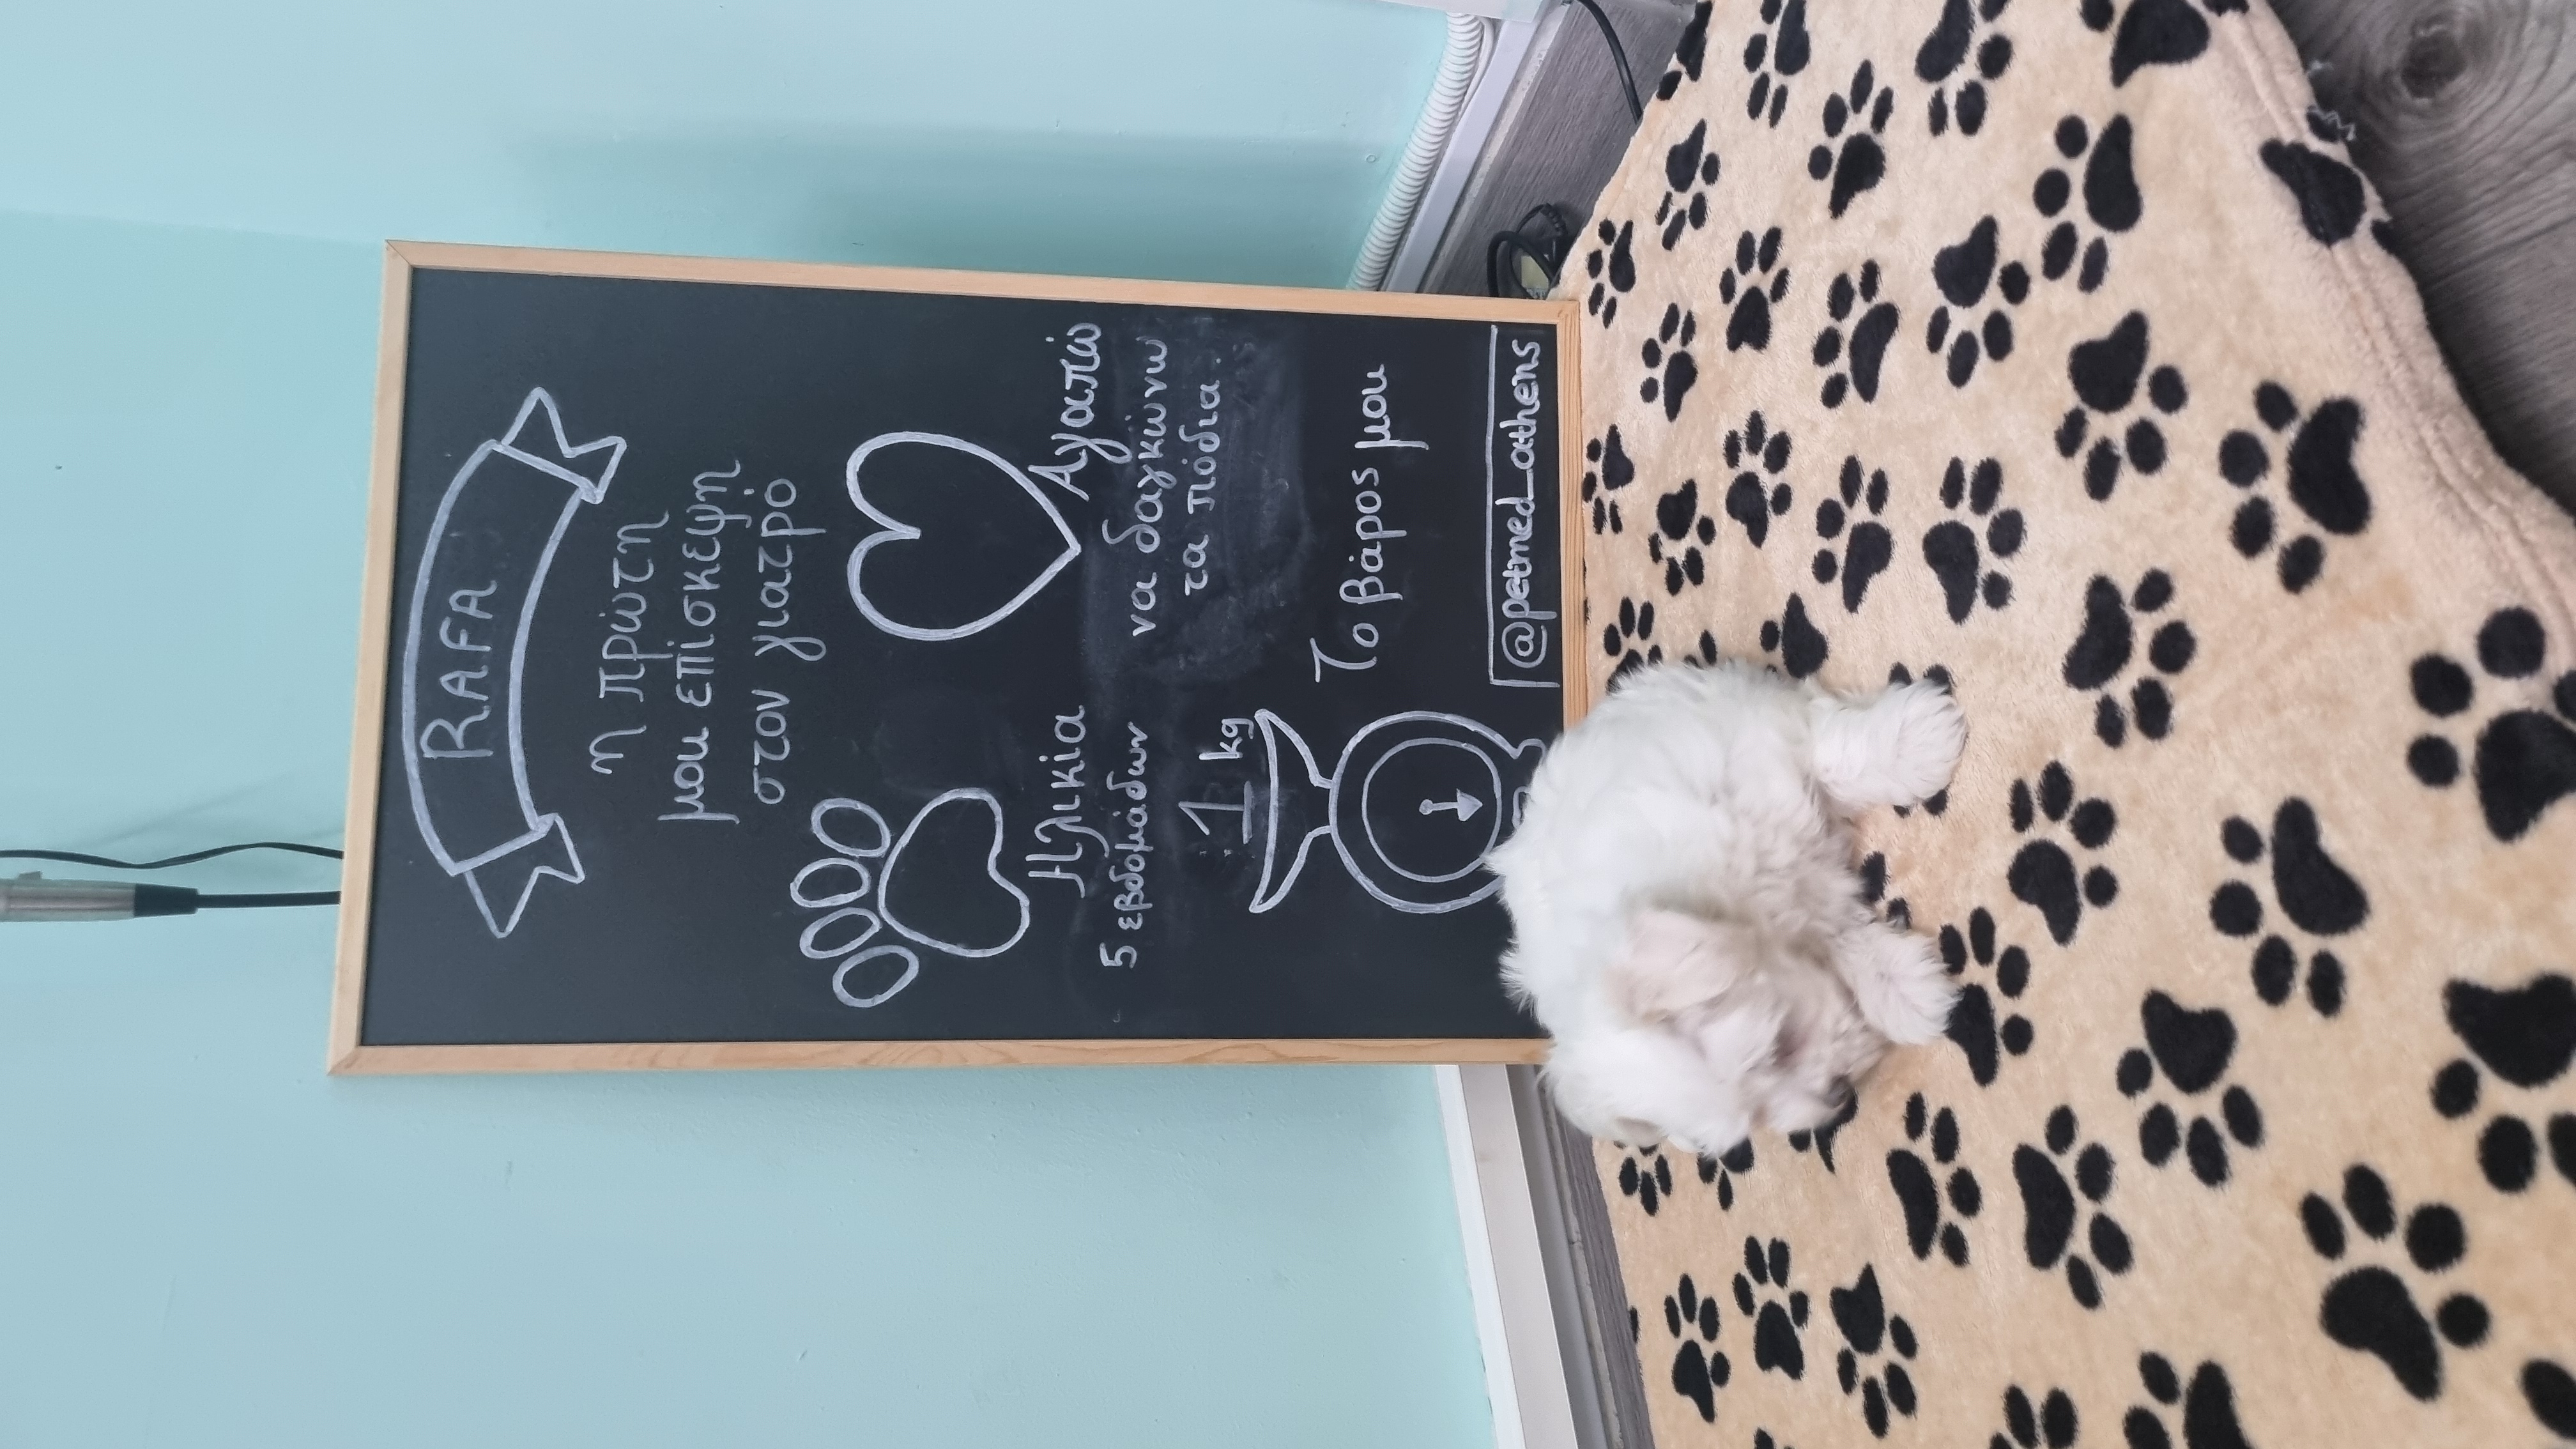 RAFA
η πρώτη
μου επίσκεψη
στον γιατρό
Ηλικία
5 εβδομάδων
Αγαπώ
να δαγκώνω
τα πόδια.
1 kg
Το βάρος μου
@petmed_athens